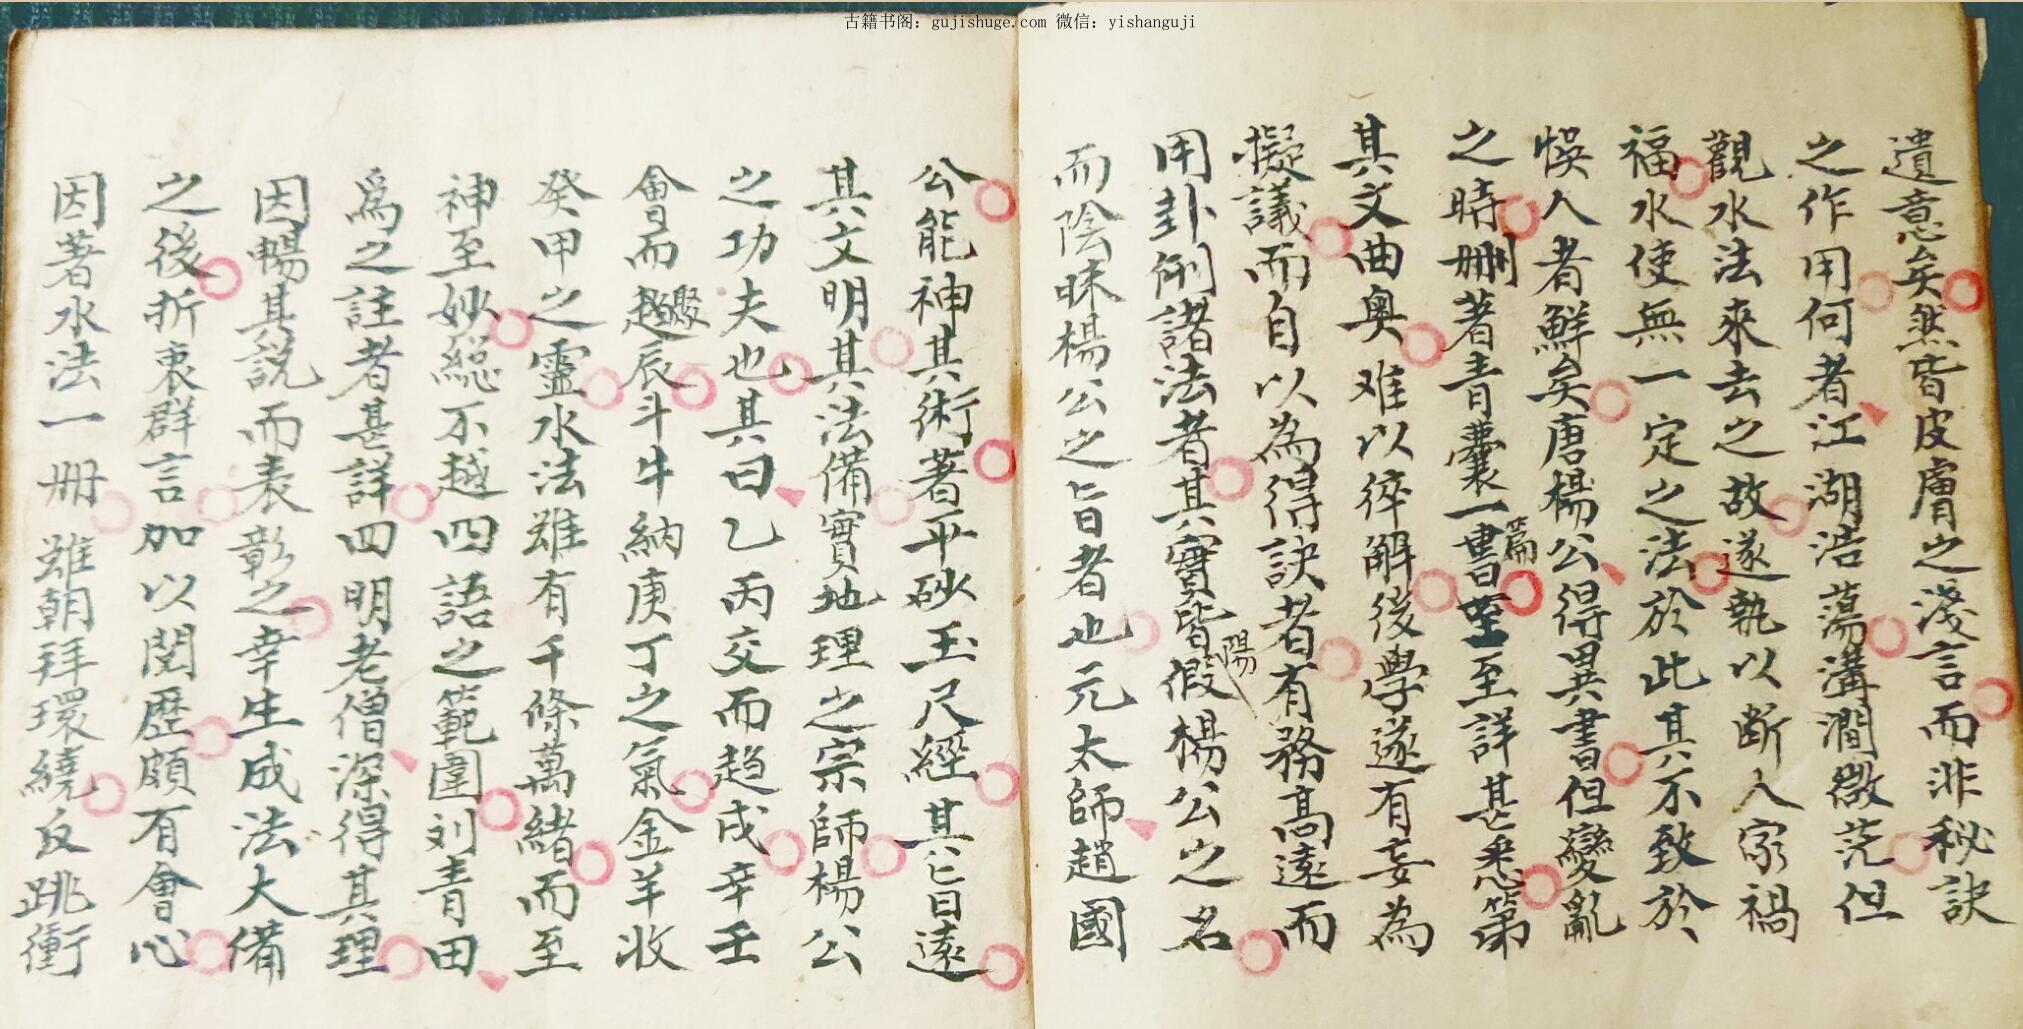 古籍书阁：gujishuge.com 微信：yishanguji
遺意矣然皆皮膚之淺言而非秘訣
之作用何者江湖浩蕩溝澗微茫但
觀水法來去之故遂執以斷人家禍
福水使無一定之法於此其不致於
悞人者鮮矣唐楊公得異書但變亂
之時刪著青囊一書篇至至詳甚悉第
其文曲奥难以猝解後學遂有妄為
擬議而自以為得訣者有務高遠而
用卦例諸法者其實皆陽假楊公之名
而陰昧楊公之旨者也元太師趙國
公能神其術著平砂玉尺經其亡曰遠
其文明其法備實地理之宗師楊公
之功夫也其曰乙丙交而趋戌辛壬
會而趨聚辰斗牛納庚丁之氣金羊收
癸甲之靈水法雖有千條萬緒而至
神至妙總不越四語之範圍刘青田
爲之註者甚詳四明老僧深得其理
因暢其說而表彰之幸生成法大備
之後折衷群言加以閱歷頗有會心
因著水法一册雖朝拜環繞反跳衝